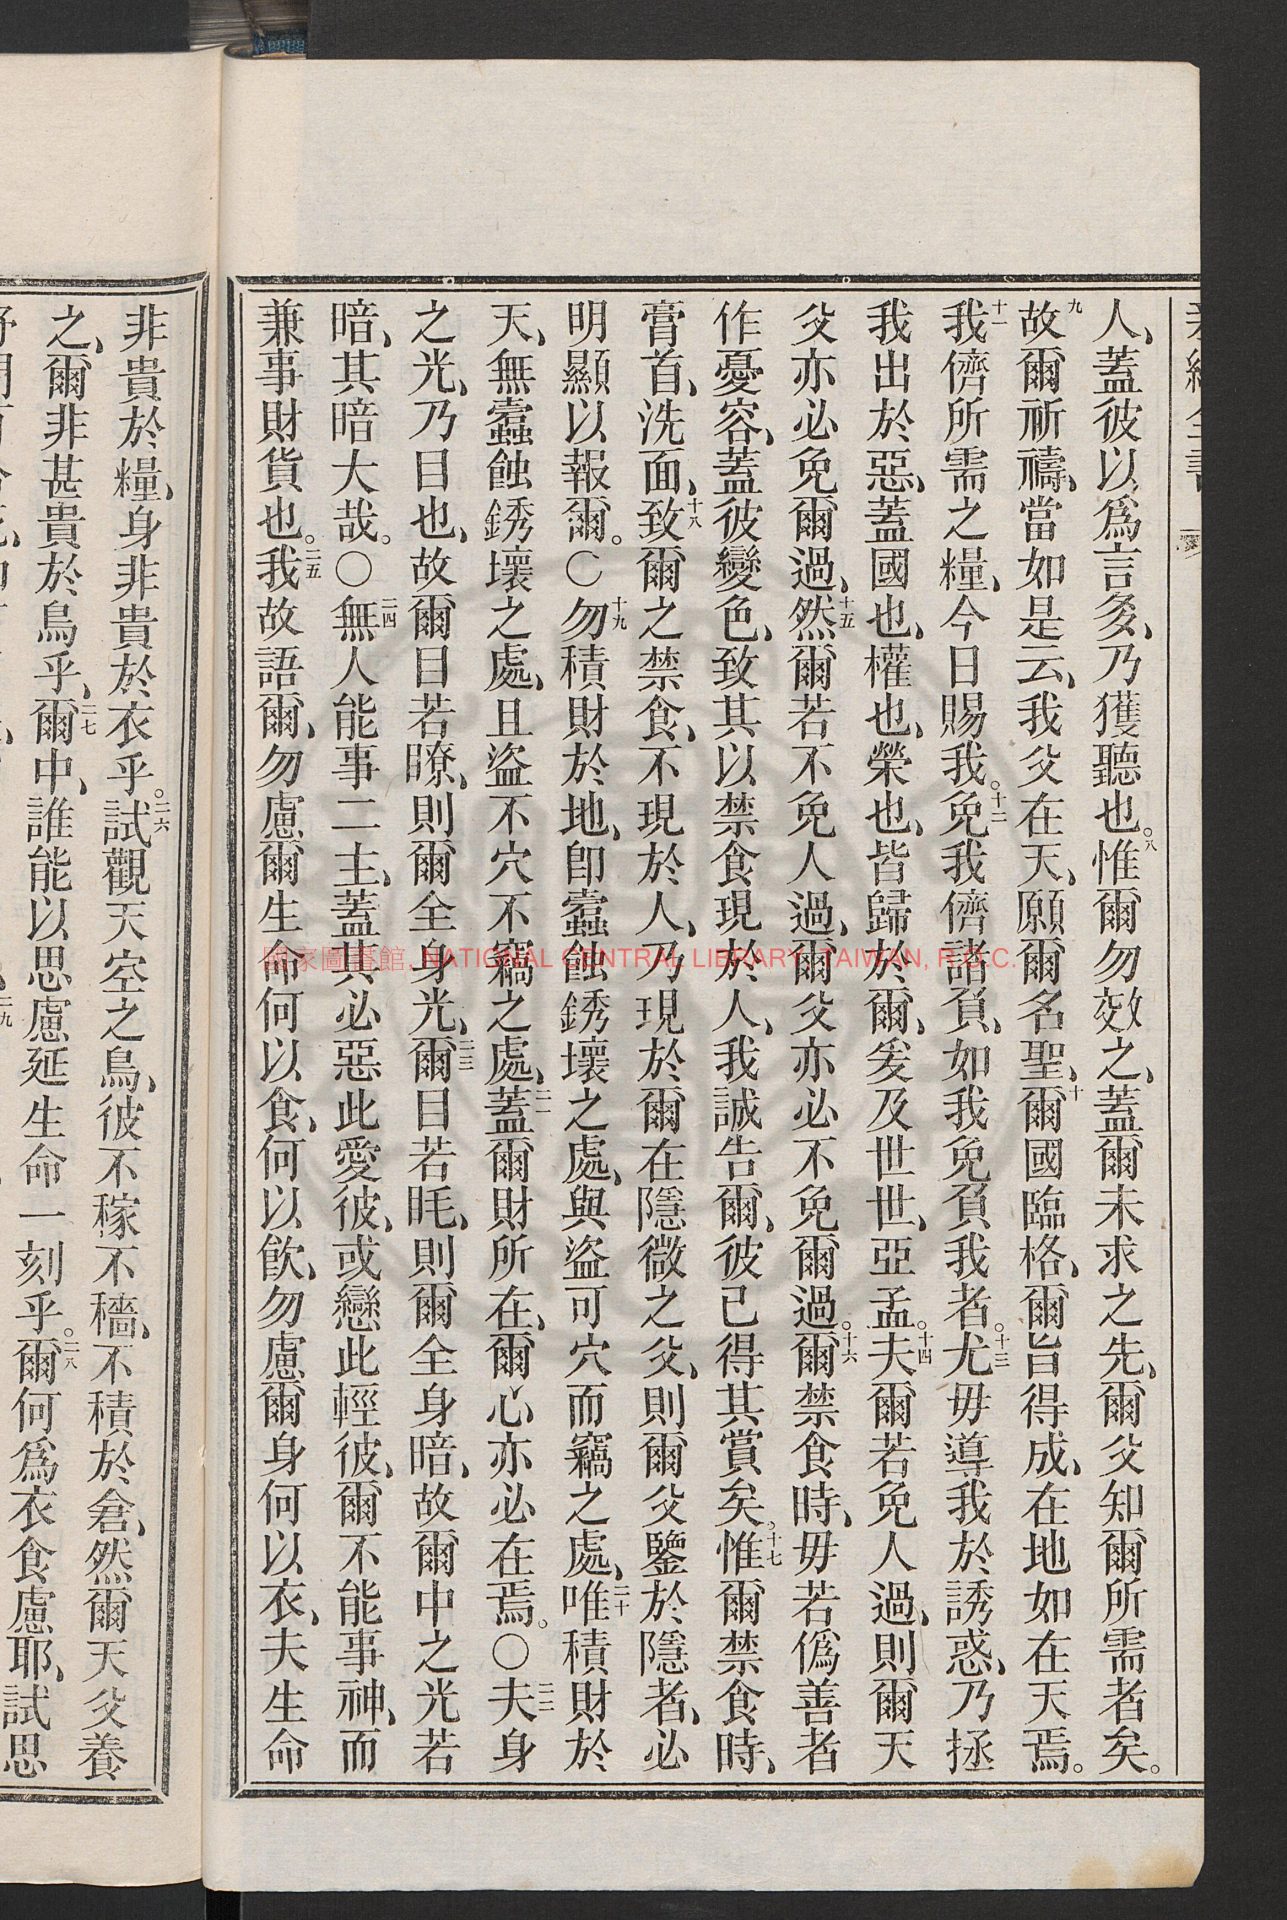 人、蓋彼以爲言多、乃獲聽也。八惟爾勿效之、蓋爾未求之先、爾父知爾所需者矣。
九故爾祈禱、當如是云、我父在天、願爾名聖、十爾國臨格、爾旨得成、在地如在天焉。
十一我儕所需之糧、今日賜我。十二免我儕諸負、如我免負我者。十三尤毋導我於誘惑、乃拯
我出於惡、蓋國也、權也、榮也、皆歸於爾、爰及世世、亞孟。十四夫爾若免人過、則爾天
父亦必免爾過、十五然爾若不免人過、爾父亦必不免爾過。十六爾禁食時、毋若僞善者
作憂容、蓋彼變色、致其以禁食現於人、我誠告爾、彼已得其賞矣。十七惟爾禁食時、
膏首、洗面、十八致爾之禁食、不現於人、乃現於爾在隱微之父、則爾父鑒於隱者、必
明顯以報爾。○十九勿積財於地、卽蠹蝕銹壞之處、與盜可穴而竊之處、二十唯積財於
天、無蠹蝕銹壞之處、且盜不穴不竊之處、二一蓋爾財所在、爾心亦必在焉。○二二夫身
之光、乃目也、故爾目若瞭、則爾全身光、二三爾目若眊、則爾全身暗、故爾中之光若
暗、其暗大哉。○二四無人能事二主、蓋其必惡此愛彼、或戀此輕彼、爾不能事神、而
兼事財貨也。二五我故語爾、勿慮爾生命何以食、何以飮、勿慮爾身何以衣、夫生命
非貴於糧、身非貴於衣乎。二六試觀天空之鳥、彼不稼不穡、不積於倉、然爾天父養
之、爾非甚貴於鳥乎、二七爾中、誰能以思慮延生命一刻乎。二八爾何爲衣食慮耶、試思
國家圖書館, NATIONAL CENTRAL LIBRARY, TAIWAN, R.O.C.